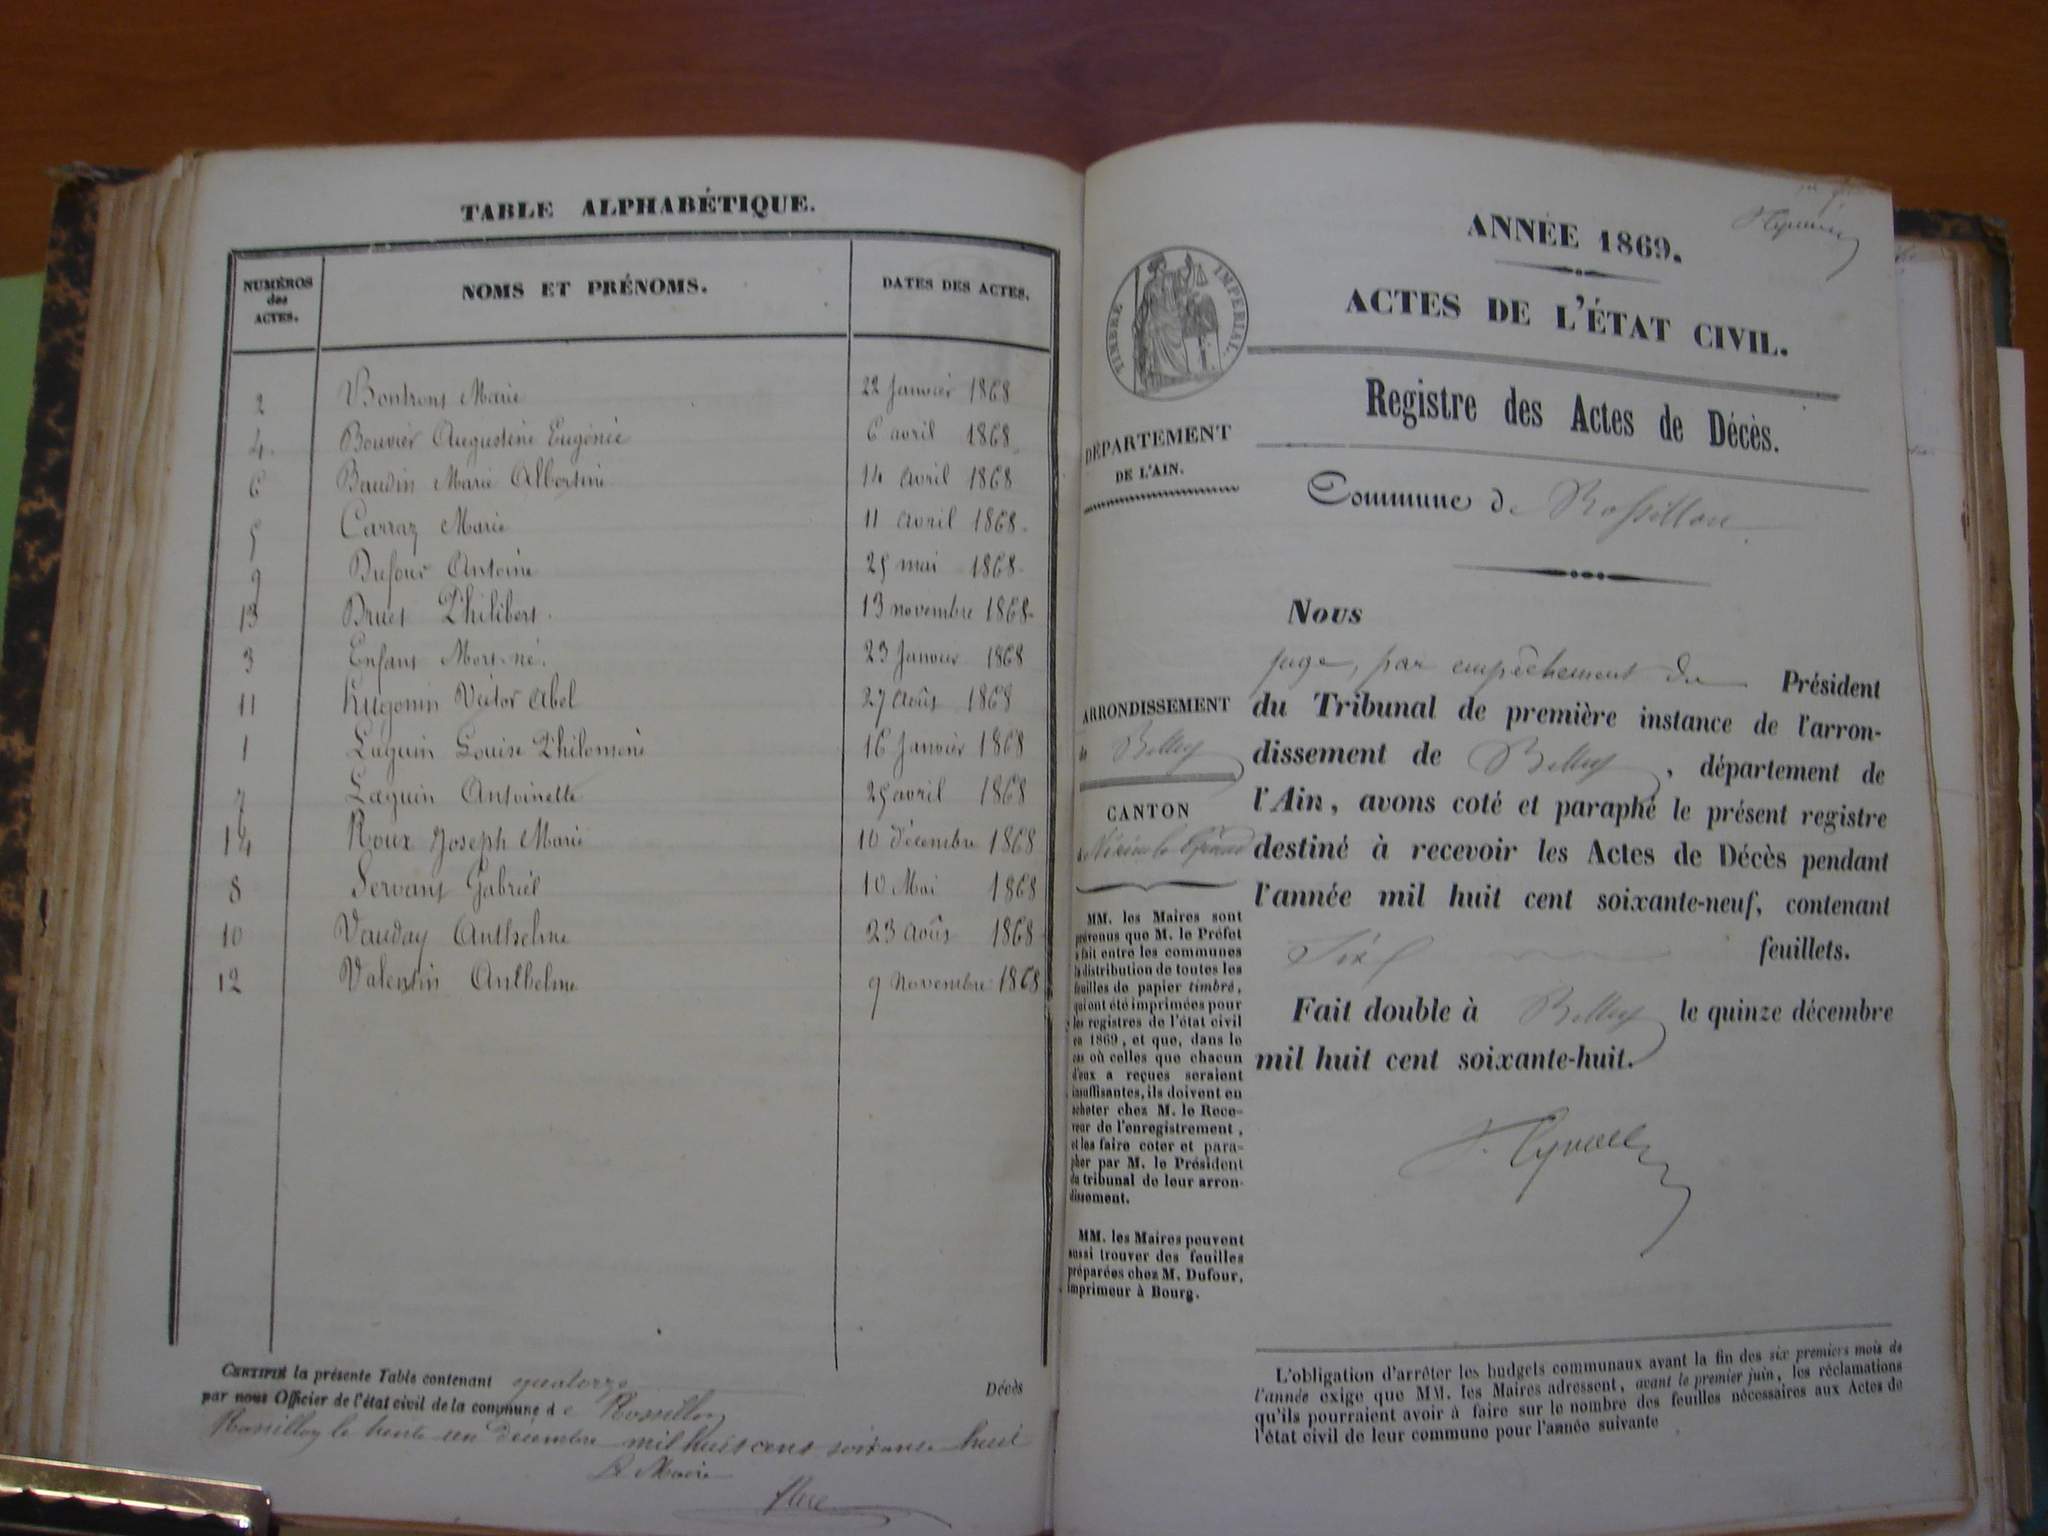 TABLE ALPHABÉTIQUE.
NUMÉROS des ACTES. NOMS ET PRÉNOMS. DATES DES ACTES.
2 Bontrons Marie 22 Janvier 1868
4. Bouvier Augustine Eugénie 6 avril 1868
6 Baudin Marie Albertine 14 avril 1868
5 Carraz Marie 11 avril 1868
9 Dufour Antoine 25 mai 1868
13 Druet Philibert. 13 novembre 1868
3 Enfant Mort-né. 23 Janvier 1868
11 Hugonin Victor Abel 27 Août 1868
1 Laguin Louise Philomène 16 Janvier 1868
7 Laguin Antoinette 25 avril 1868
14 Roux Joseph Marie 10 décembre 1868
8 Servant Gabriel 10 Mai 1868
10 Vauday Anthelme 23 Août 1868
12 Valentin Anthelme 9 Novembre 1868
CERTIFIÉ la présente Table contenant quatorze Décès
par nous Officier de l'état civil de la commune de Rossillon
Rossillon le trente un décembre mil huit cent soixante huit
Le Maire
ANNÉE 1869.
ACTES DE L'ÉTAT CIVIL.
TIMBRE IMPÉRIAL.
Registre des Actes de Décès.
DÉPARTEMENT
DE L'AIN.
Commune de Rossillon
Nous
juge, par empêchement du Président
du Tribunal de première instance de l'arron-
dissement de Belley, département de
l'Ain, avons coté et paraphé le présent registre
destiné à recevoir les Actes de Décès pendant
l'année mil huit cent soixante-neuf, contenant
Six feuillets.
Fait double à Belley le quinze décembre
mil huit cent soixante-huit.
ARRONDISSEMENT
de Belley
CANTON
de Virieu le Grand
MM. les Maires sont
prévenus que M. le Préfet
a fait entre les communes
la distribution de toutes les
feuilles de papier timbré,
qui ont été imprimées pour
les registres de l'état civil
en 1869, et que, dans le
cas où celles que chacun
d'eux a reçues seraient
insuffisantes, ils doivent en
acheter chez M. le Rece-
veur de l'enregistrement,
et les faire coter et para-
pher par M. le Président
du tribunal de leur arron-
dissement.
MM. les Maires peuvent
aussi trouver des feuilles
préparées chez M. Dufour,
imprimeur à Bourg.
L'obligation d'arrêter les budgets communaux avant la fin des six premiers mois de
l'année exige que MM. les Maires adressent, avant le premier juin, les réclamations
qu'ils pourraient avoir à faire sur le nombre des feuilles nécessaires aux Actes de
l'état civil de leur commune pour l'année suivante